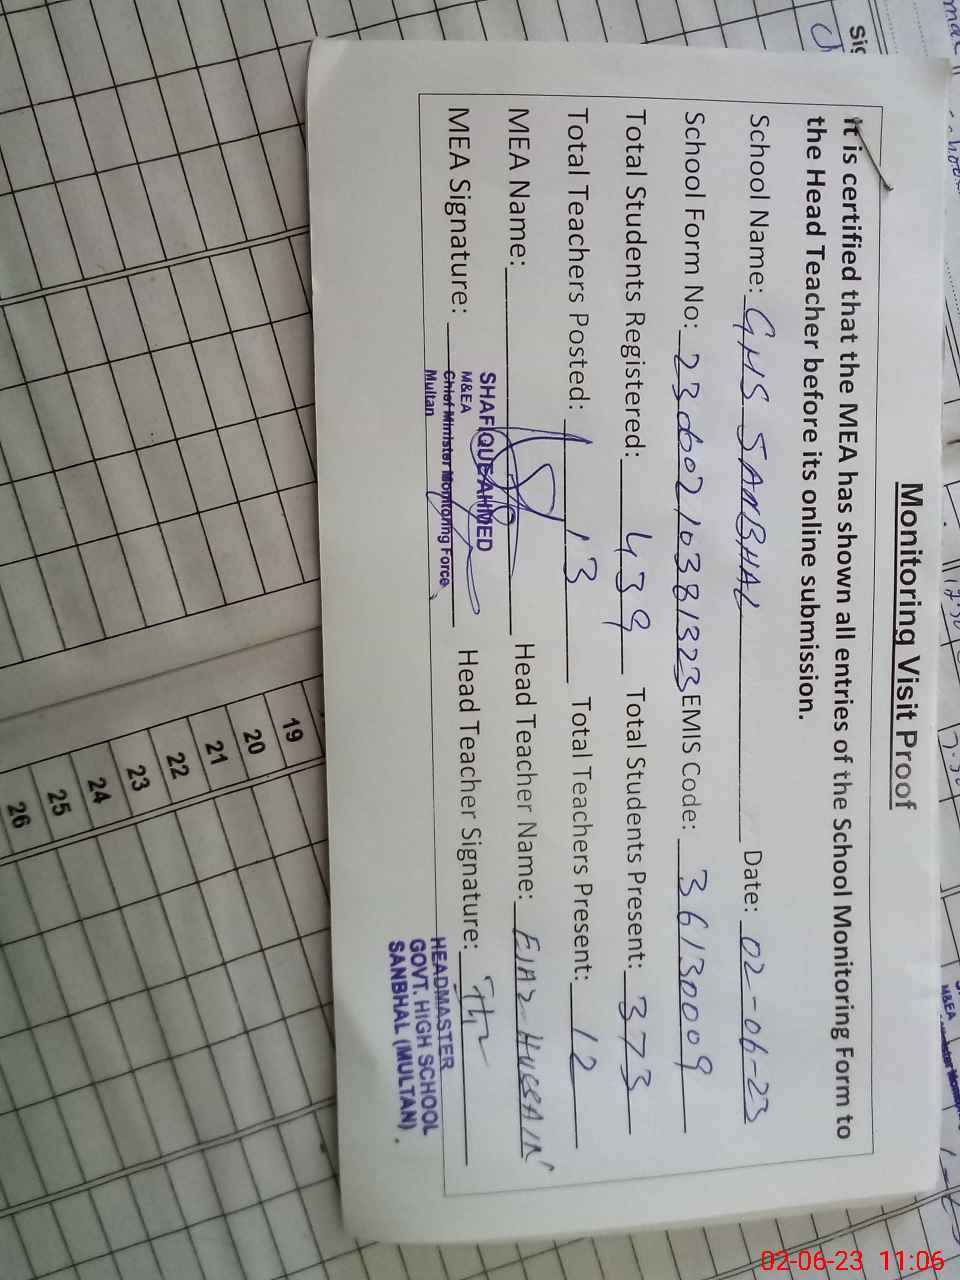 Monitoring Visit Proof
It is certified that the MEA has shown all entries of the School Monitoring Form to
the Head Teacher before its online submission.
School Name: GHS SANBHAL Date: 02-06-23
School Form No: 23060210381323 EMIS Code: 36130009
Total Students Registered: 439 Total Students Present: 373
Total Teachers Posted: 13 Total Teachers Present: 12
MEA Name: Head Teacher Name: EJAZ HUSSAIN
MEA Signature: Head Teacher Signature:
SHAFIQUE AHMED
M&EA
Chief Minister Monitoring Force
Multan
HEADMASTER
GOVT. HIGH SCHOOL
SANBHAL (MULTAN).
19
20
21
22
23
24
25
26
Sig
M&EA
02-06-23 11:06